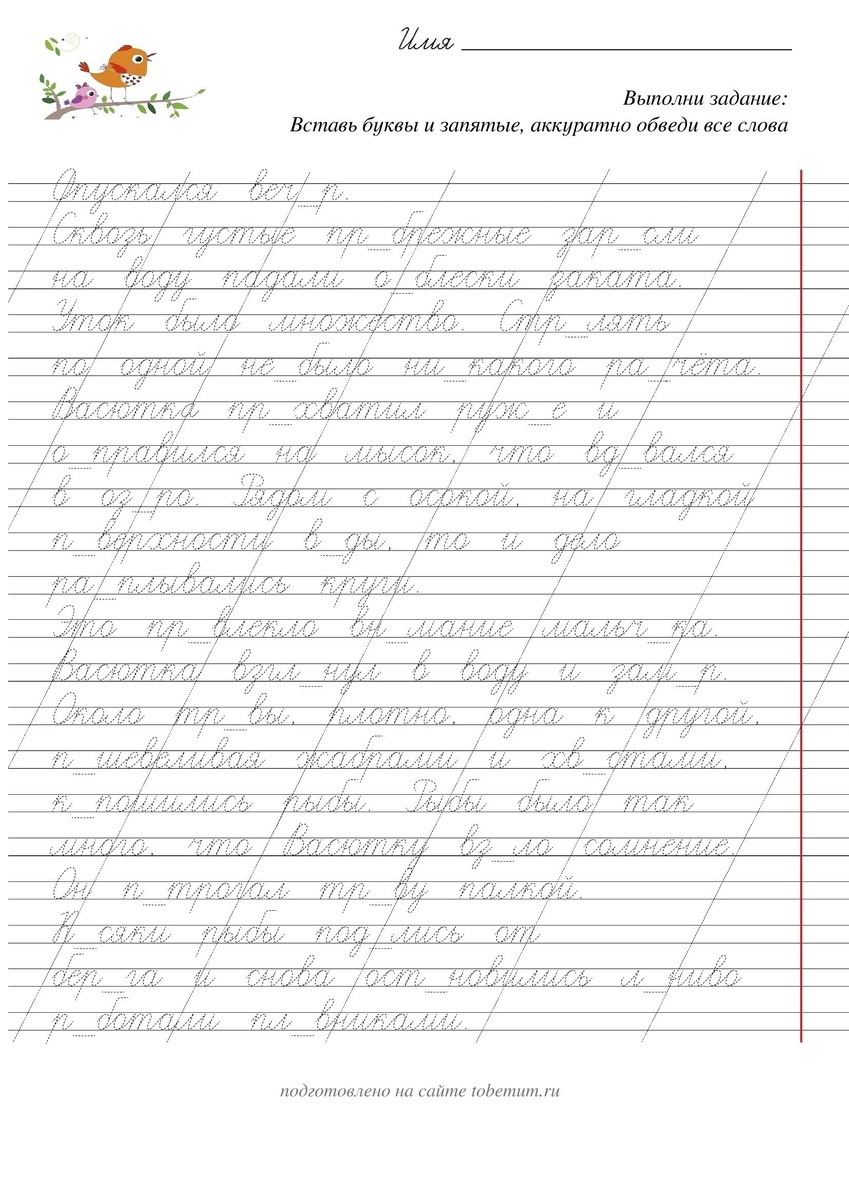 Имя
Выполни задание:
Вставь буквы и запятые, аккуратно обведи все слова
Опускался веч_р.
Сквозь густые пр_брежные зар_сли
на воду падали о_блески заката.
Уток было множество. Стр_лять
по одной не_было ни_какого ра_чёта.
Васютка пр_хватил руж_е и
о_правился на мысок, что вд_вался
в оз_ро. Рядом с осокой, на гладкой
п_верхности в_ды, то и дело
ра_плывались круги.
Это пр_влекло вн_мание мальч_ка.
Васютка взгл_нул в воду и зам_р.
Около тр_вы, плотно, одна к другой,
п_шевеливая жабрами и хв_стами,
к_пошились рыбы. Рыбы было так
много, что Васютку вз_ло сомнение.
Он п_трогал тр_ву палкой.
К_сяки рыбы под_лись от
бер_га и снова ост_новились л_ниво
р_ботали пл_вниками.
подготовлено на сайте tobemum.ru